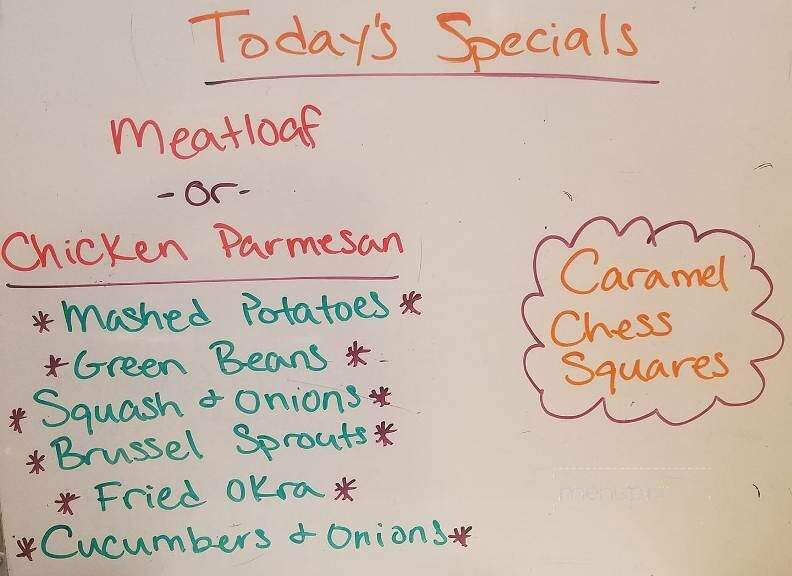 Today's Specials
Meatloaf
-or-
Chicken Parmesan
*Mashed Potatoes*
*Green Beans*
*Squash & Onions*
*Brussel Sprouts*
*Fried Okra*
*Cucumbers & Onions*
Caramel
Chess
Squares